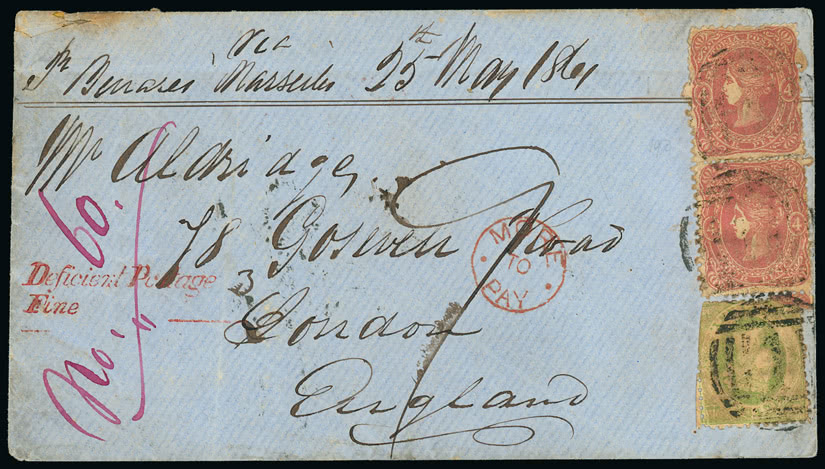 via
Pr Benares Marseilles 25th May 1861
Mr Aldridge,
78 Goswell Road
London
England
No. 60.
Deficient Postage
Fine
3
MORE
TO
PAY